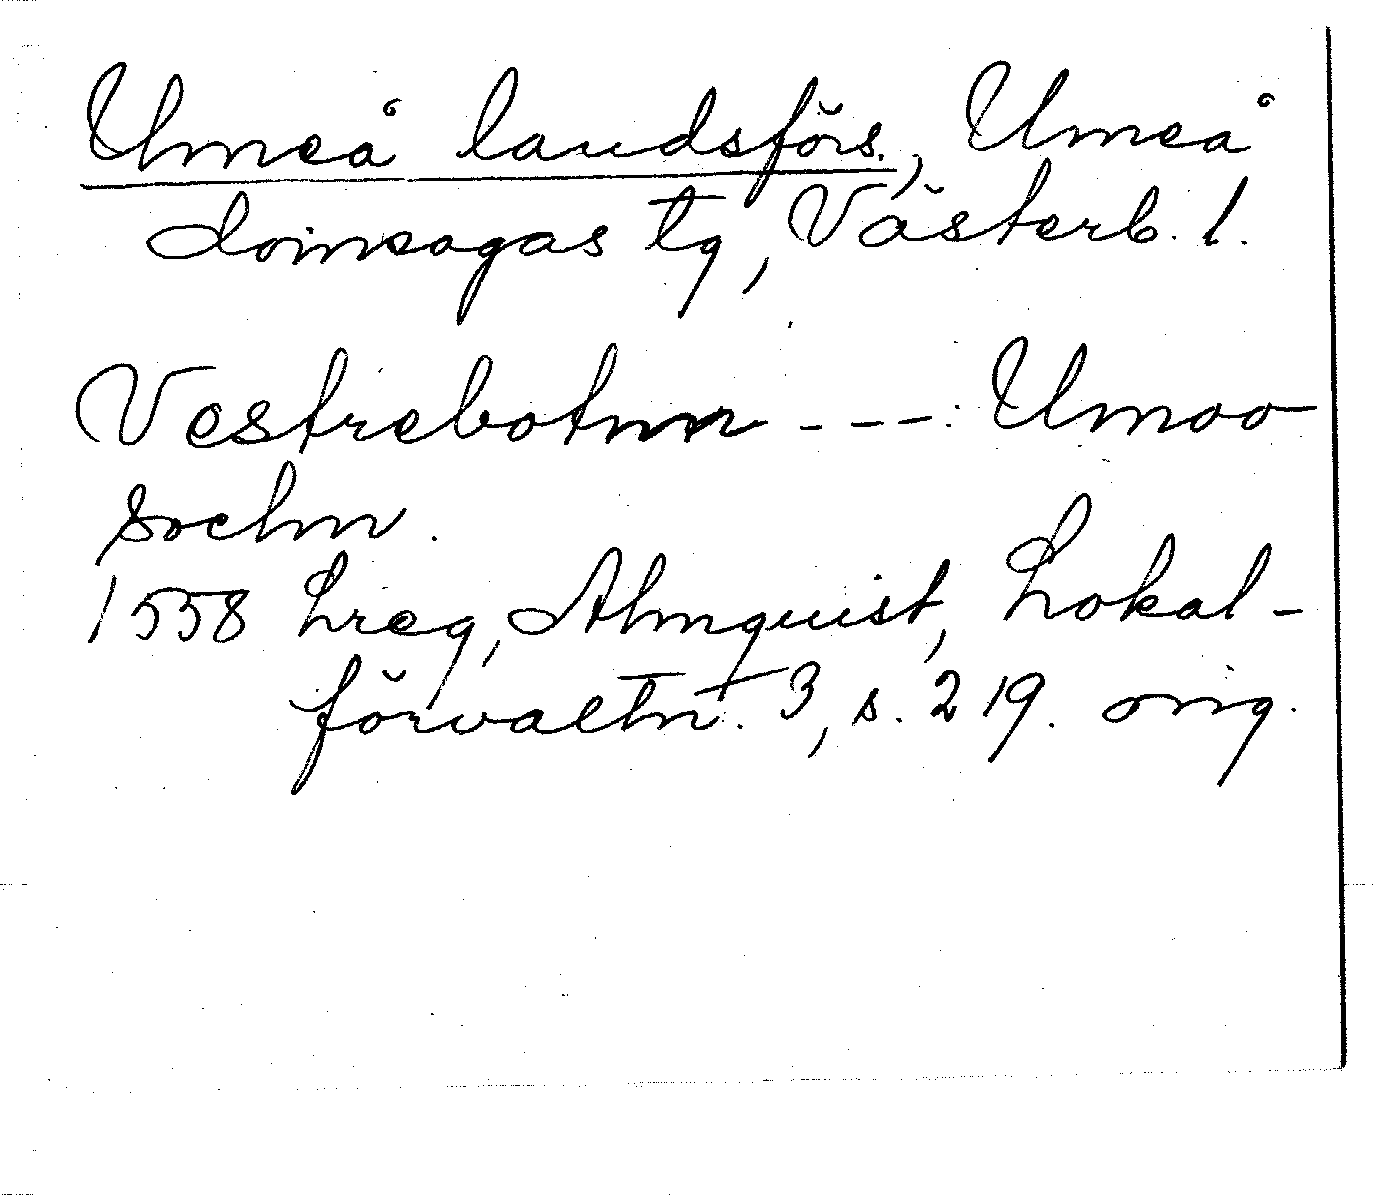 Umeå landsförs., Umeå
domsagas tg, Västerb. l.
Vestrebotnn ---. Umoo
sochn.
1558 Lreg, Almquist, Lokal-
förvaltn. 3, s. 219. orig.